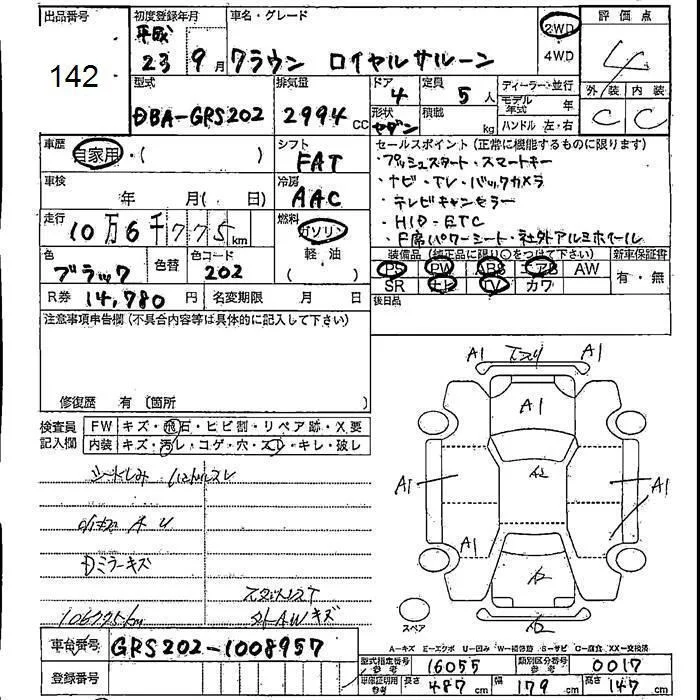 出品番号
142
初度登録年月
平成
23 9月
車名・グレード
クラウン ロイヤルサルーン
2WD
4WD
評価点
4
外装 内装
C C
型式
DBA-GRS202
排気量
2994 CC
ドア
4
定員
5人
形状
セダン
積載
kg
ディーラー・並行
モデル年式 年
ハンドル 左・右
車歴
自家用・( )
シフト
FAT
車検
年 月( 日)
冷房
AAC
走行
10万6千775km
燃料
ガソリン
軽・油
( )
色
ブラック
色替
色コード
202
R券 14,780 円
名変期限 月 日
セールスポイント(正常に機能するものに限ります)
・プッシュスタート・スマートキー
・ナビ・TV・バックカメラ
・テレビキャンセラー
・HID・ETC
・F席パワーシート・社外アルミホイール
装備品(純正品に限り○をつけて下さい)
PS PW ABS エアB AW
SR ナビ TV カワ
新車保証書
有・無
後日品
注意事項申告欄(不具合内容等は具体的に記入して下さい)
修復歴 有 〔箇所 〕
検査員
記入欄
FW キズ・飛石・ヒビ割・リペア跡・X要
内装 キズ・汚レ・コゲ・穴・スレ・キレ・破レ
シートしみ ハンドルスレ
A U
Dミラーキズ
106775km
外AWキズ
A1 A1
A1
A2
A1 A1
A1
A2
A2
スペア
A-キズ E-エクボ U-凹み W-補修跡 S-サビ C-腐食 XX-交換済
車台番号 GRS202-1008957
登録番号
型式指定番号 参考 16055
類別区分番号 参考 0017
車庫証明用 参考 長さ 487cm 幅 179cm 高さ 147cm